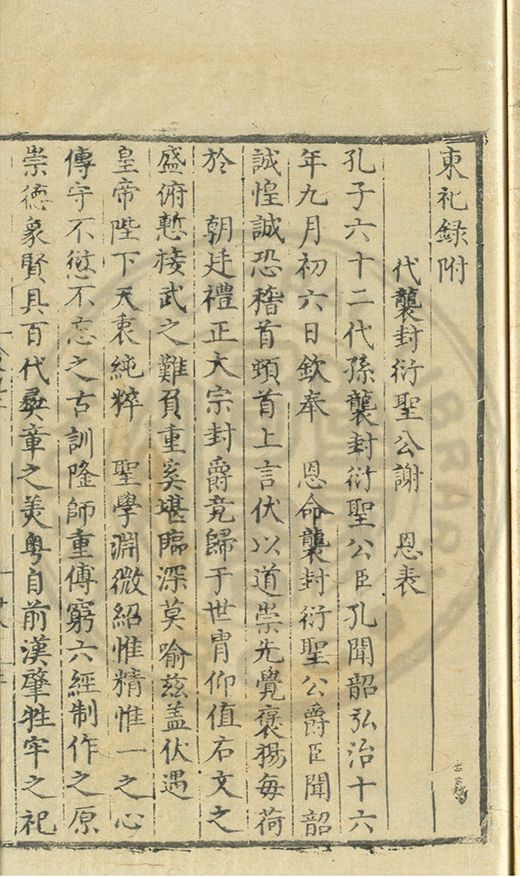 東祀録附
代襲封衍聖公謝　恩表
孔子六十二代孫襲封衍聖公臣孔聞韶弘治十六
年九月初六日欽奉　恩命襲封衍聖公爵臣聞韶
誠惶誠恐稽首頓首上言伏以道崇先覺褒揚每荷
於　朝廷禮正大宗封爵竟歸于世胄仰值右文之
盛俯慙接武之難負重奚堪臨深莫喻兹盖伏遇
皇帝陛下天衷純粹　聖學淵微紹惟精惟一之心
傳守不愆不忘之古訓隆師重傅窮六經制作之原
崇德象賢具百代彝章之美粤自前漢肇牲牢之祀